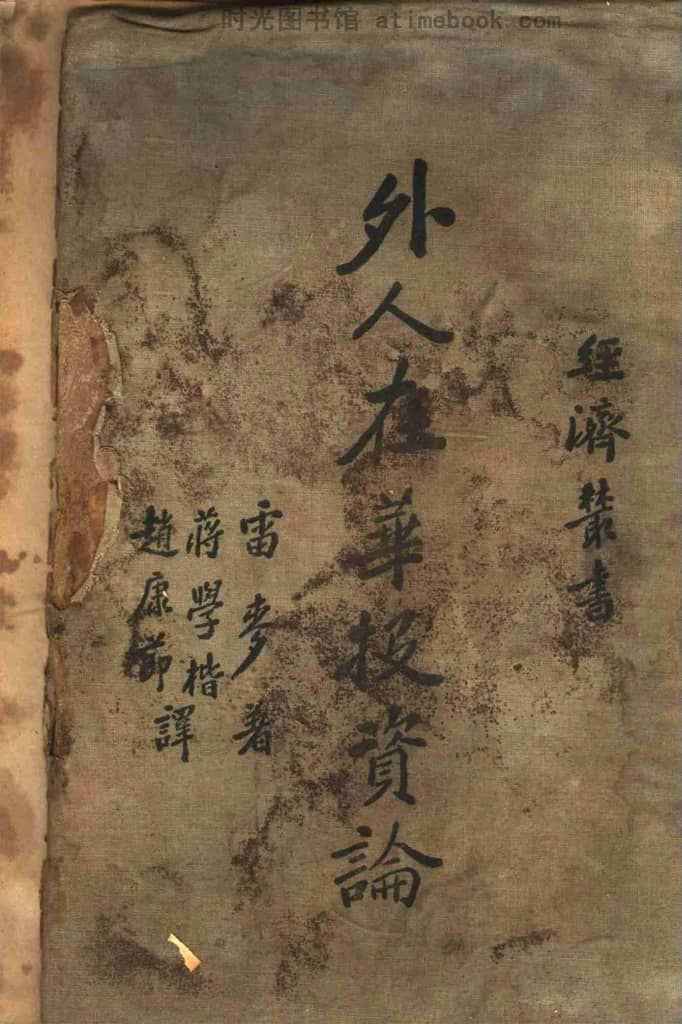 时光图书馆 atimebook.com
經濟叢書
外人在華投資論
雷麥著
蔣學楷
趙康節譯